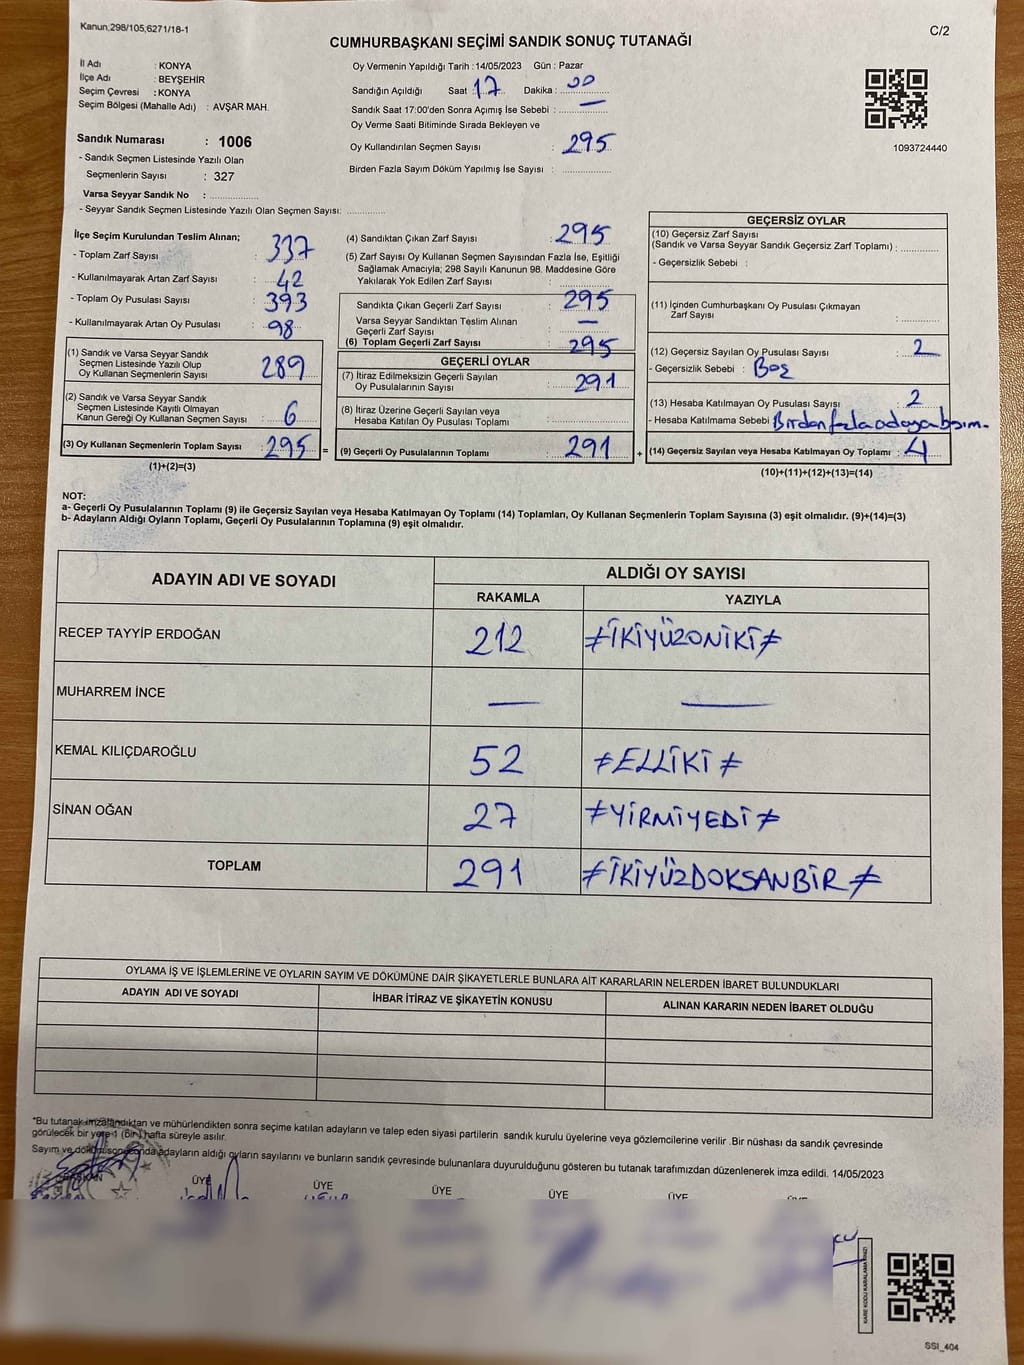 Kanun,298/105,6271/18-1
C/2
CUMHURBAŞKANI SEÇİMİ SANDIK SONUÇ TUTANAĞI
İl Adı : KONYA
İlçe Adı : BEYŞEHİR
Seçim Çevresi : KONYA
Seçim Bölgesi (Mahalle Adı) : AVŞAR MAH.
Sandık Numarası : 1006
- Sandık Seçmen Listesinde Yazılı Olan
Seçmenlerin Sayısı : 327
Varsa Seyyar Sandık No : ................
- Seyyar Sandık Seçmen Listesinde Yazılı Olan Seçmen Sayısı: ............
Oy Vermenin Yapıldığı Tarih : 14/05/2023 Gün : Pazar
Sandığın Açıldığı Saat : 17 Dakika : 00
Sandık Saat 17:00'den Sonra Açımış İse Sebebi : —
Oy Verme Saati Bitiminde Sırada Bekleyen ve
Oy Kullandırılan Seçmen Sayısı : 295
Birden Fazla Sayım Döküm Yapılmış İse Sayısı : ................
1093724440
İlçe Seçim Kurulundan Teslim Alınan;
- Toplam Zarf Sayısı : 337
- Kullanılmayarak Artan Zarf Sayısı : 42
- Toplam Oy Pusulası Sayısı : 393
- Kullanılmayarak Artan Oy Pusulası : 98
(1) Sandık ve Varsa Seyyar Sandık
Seçmen Listesinde Yazılı Olup
Oy Kullanan Seçmenlerin Sayısı : 289
(2) Sandık ve Varsa Seyyar Sandık
Seçmen Listesinde Kayıtlı Olmayan
Kanun Gereği Oy Kullanan Seçmen Sayısı : 6
(3) Oy Kullanan Seçmenlerin Toplam Sayısı : 295 =
(1)+(2)=(3)
(4) Sandıktan Çıkan Zarf Sayısı : 295
(5) Zarf Sayısı Oy Kullanan Seçmen Sayısından Fazla İse, Eşitliği
Sağlamak Amacıyla; 298 Sayılı Kanunun 98. Maddesine Göre
Yakılarak Yok Edilen Zarf Sayısı : ............
Sandıkta Çıkan Geçerli Zarf Sayısı : 295
Varsa Seyyar Sandıktan Teslim Alınan
Geçerli Zarf Sayısı : —
(6) Toplam Geçerli Zarf Sayısı : 295
GEÇERLİ OYLAR
(7) İtiraz Edilmeksizin Geçerli Sayılan
Oy Pusulalarının Sayısı : 291
(8) İtiraz Üzerine Geçerli Sayılan veya
Hesaba Katılan Oy Pusulası Toplamı : ............
(9) Geçerli Oy Pusulalarının Toplamı : 291 +
GEÇERSİZ OYLAR
(10) Geçersiz Zarf Sayısı
(Sandık ve Varsa Seyyar Sandık Geçersiz Zarf Toplamı) : ............
- Geçersizlik Sebebi :
(11) İçinden Cumhurbaşkanı Oy Pusulası Çıkmayan
Zarf Sayısı : ............
(12) Geçersiz Sayılan Oy Pusulası Sayısı : 2
- Geçersizlik Sebebi : Boş
(13) Hesaba Katılmayan Oy Pusulası Sayısı : 2
- Hesaba Katılmama Sebebi : Birden fazla adaya basım.
(14) Geçersiz Sayılan veya Hesaba Katılmayan Oy Toplamı : 4
(10)+(11)+(12)+(13)=(14)
NOT:
a- Geçerli Oy Pusulalarının Toplamı (9) ile Geçersiz Sayılan veya Hesaba Katılmayan Oy Toplamı (14) Toplamları, Oy Kullanan Seçmenlerin Toplam Sayısına (3) eşit olmalıdır. (9)+(14)=(3)
b- Adayların Aldığı Oyların Toplamı, Geçerli Oy Pusulalarının Toplamına (9) eşit olmalıdır.
ADAYIN ADI VE SOYADI ALDIĞI OY SAYISI
RAKAMLA YAZIYLA
RECEP TAYYİP ERDOĞAN 212 ≠İKİYÜZONİKİ≠
MUHARREM İNCE — —
KEMAL KILIÇDAROĞLU 52 ≠ELLİKİ≠
SİNAN OĞAN 27 ≠YİRMİYEDİ≠
TOPLAM 291 ≠İKİYÜZDOKSANBİR≠
OYLAMA İŞ VE İŞLEMLERİNE VE OYLARIN SAYIM VE DÖKÜMÜNE DAİR ŞİKAYETLERLE BUNLARA AİT KARARLARIN NELERDEN İBARET BULUNDUKLARI
ADAYIN ADI VE SOYADI İHBAR İTİRAZ VE ŞİKAYETİN KONUSU ALINAN KARARIN NEDEN İBARET OLDUĞU
*Bu tutanak imzalandıktan ve mühürlendikten sonra seçime katılan adayların ve talep eden siyasi partilerin sandık kurulu üyelerine veya gözlemcilerine verilir. Bir nüshası da sandık çevresinde
görülecek bir yere 1 (Bir) hafta süreyle asılır.
Sayım ve döküm sonucunda adayların aldığı oyların sayılarını ve bunların sandık çevresinde bulunanlara duyurulduğunu gösteren bu tutanak tarafımızdan düzenlenerek imza edildi. 14/05/2023
ÜYE ÜYE ÜYE ÜYE ÜYE
KARE KODU KARALAMAYINIZ!
SSI_404